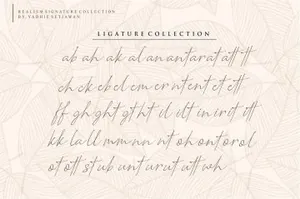 REALISM SIGNATURE COLLECTION
LIGATURE COLLECTION
ab ah ak al an ant ar at att it
ch ck eb el em er nt ent et ett
ff gh ght gt ht il ilt in ir it itt
kk la ll mm nn nt oh on to rol
ot ott st ub unt ur ut utt wh